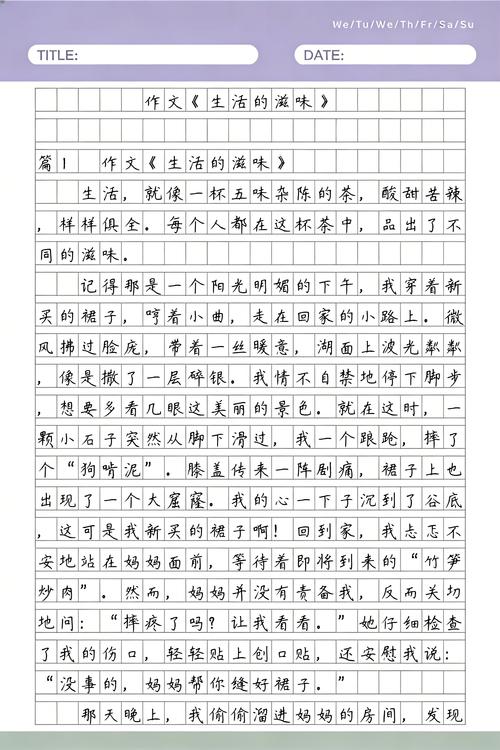 We/Tu/We/Th/Fr/Sa/Su
TITLE:
DATE:
作文《生活的滋味》
篇1 作文《生活的滋味》
生活，就像一杯五味杂陈的茶，酸甜苦辣
，样样俱全。每个人都在这杯茶中，品出了不
同的滋味。
记得那是一个阳光明媚的下午，我穿着新
买的裙子，哼着小曲，走在回家的小路上。微
风拂过脸庞，带着一丝暖意，湖面上波光粼粼
，像是撒了一层碎银。我情不自禁地停下脚步
，想要多看几眼这美丽的景色。就在这时，一
颗小石子突然从脚下滑过，我一个踉跄，摔了
个“狗啃泥”。膝盖传来一阵剧痛，裙子上也
出现了一个大窟窿。我的心一下子沉到了谷底
，这可是我新买的裙子啊！回到家，我忐忑不
安地站在妈妈面前，等待着即将到来的“竹笋
炒肉”。然而，妈妈并没有责备我，反而关切
地问：“摔疼了吗？让我看看。”她仔细检查
了我的伤口，轻轻贴上创口贴，还安慰我说：
“没事的，妈妈帮你缝好裙子。”
那天晚上，我偷偷溜进妈妈的房间，发现